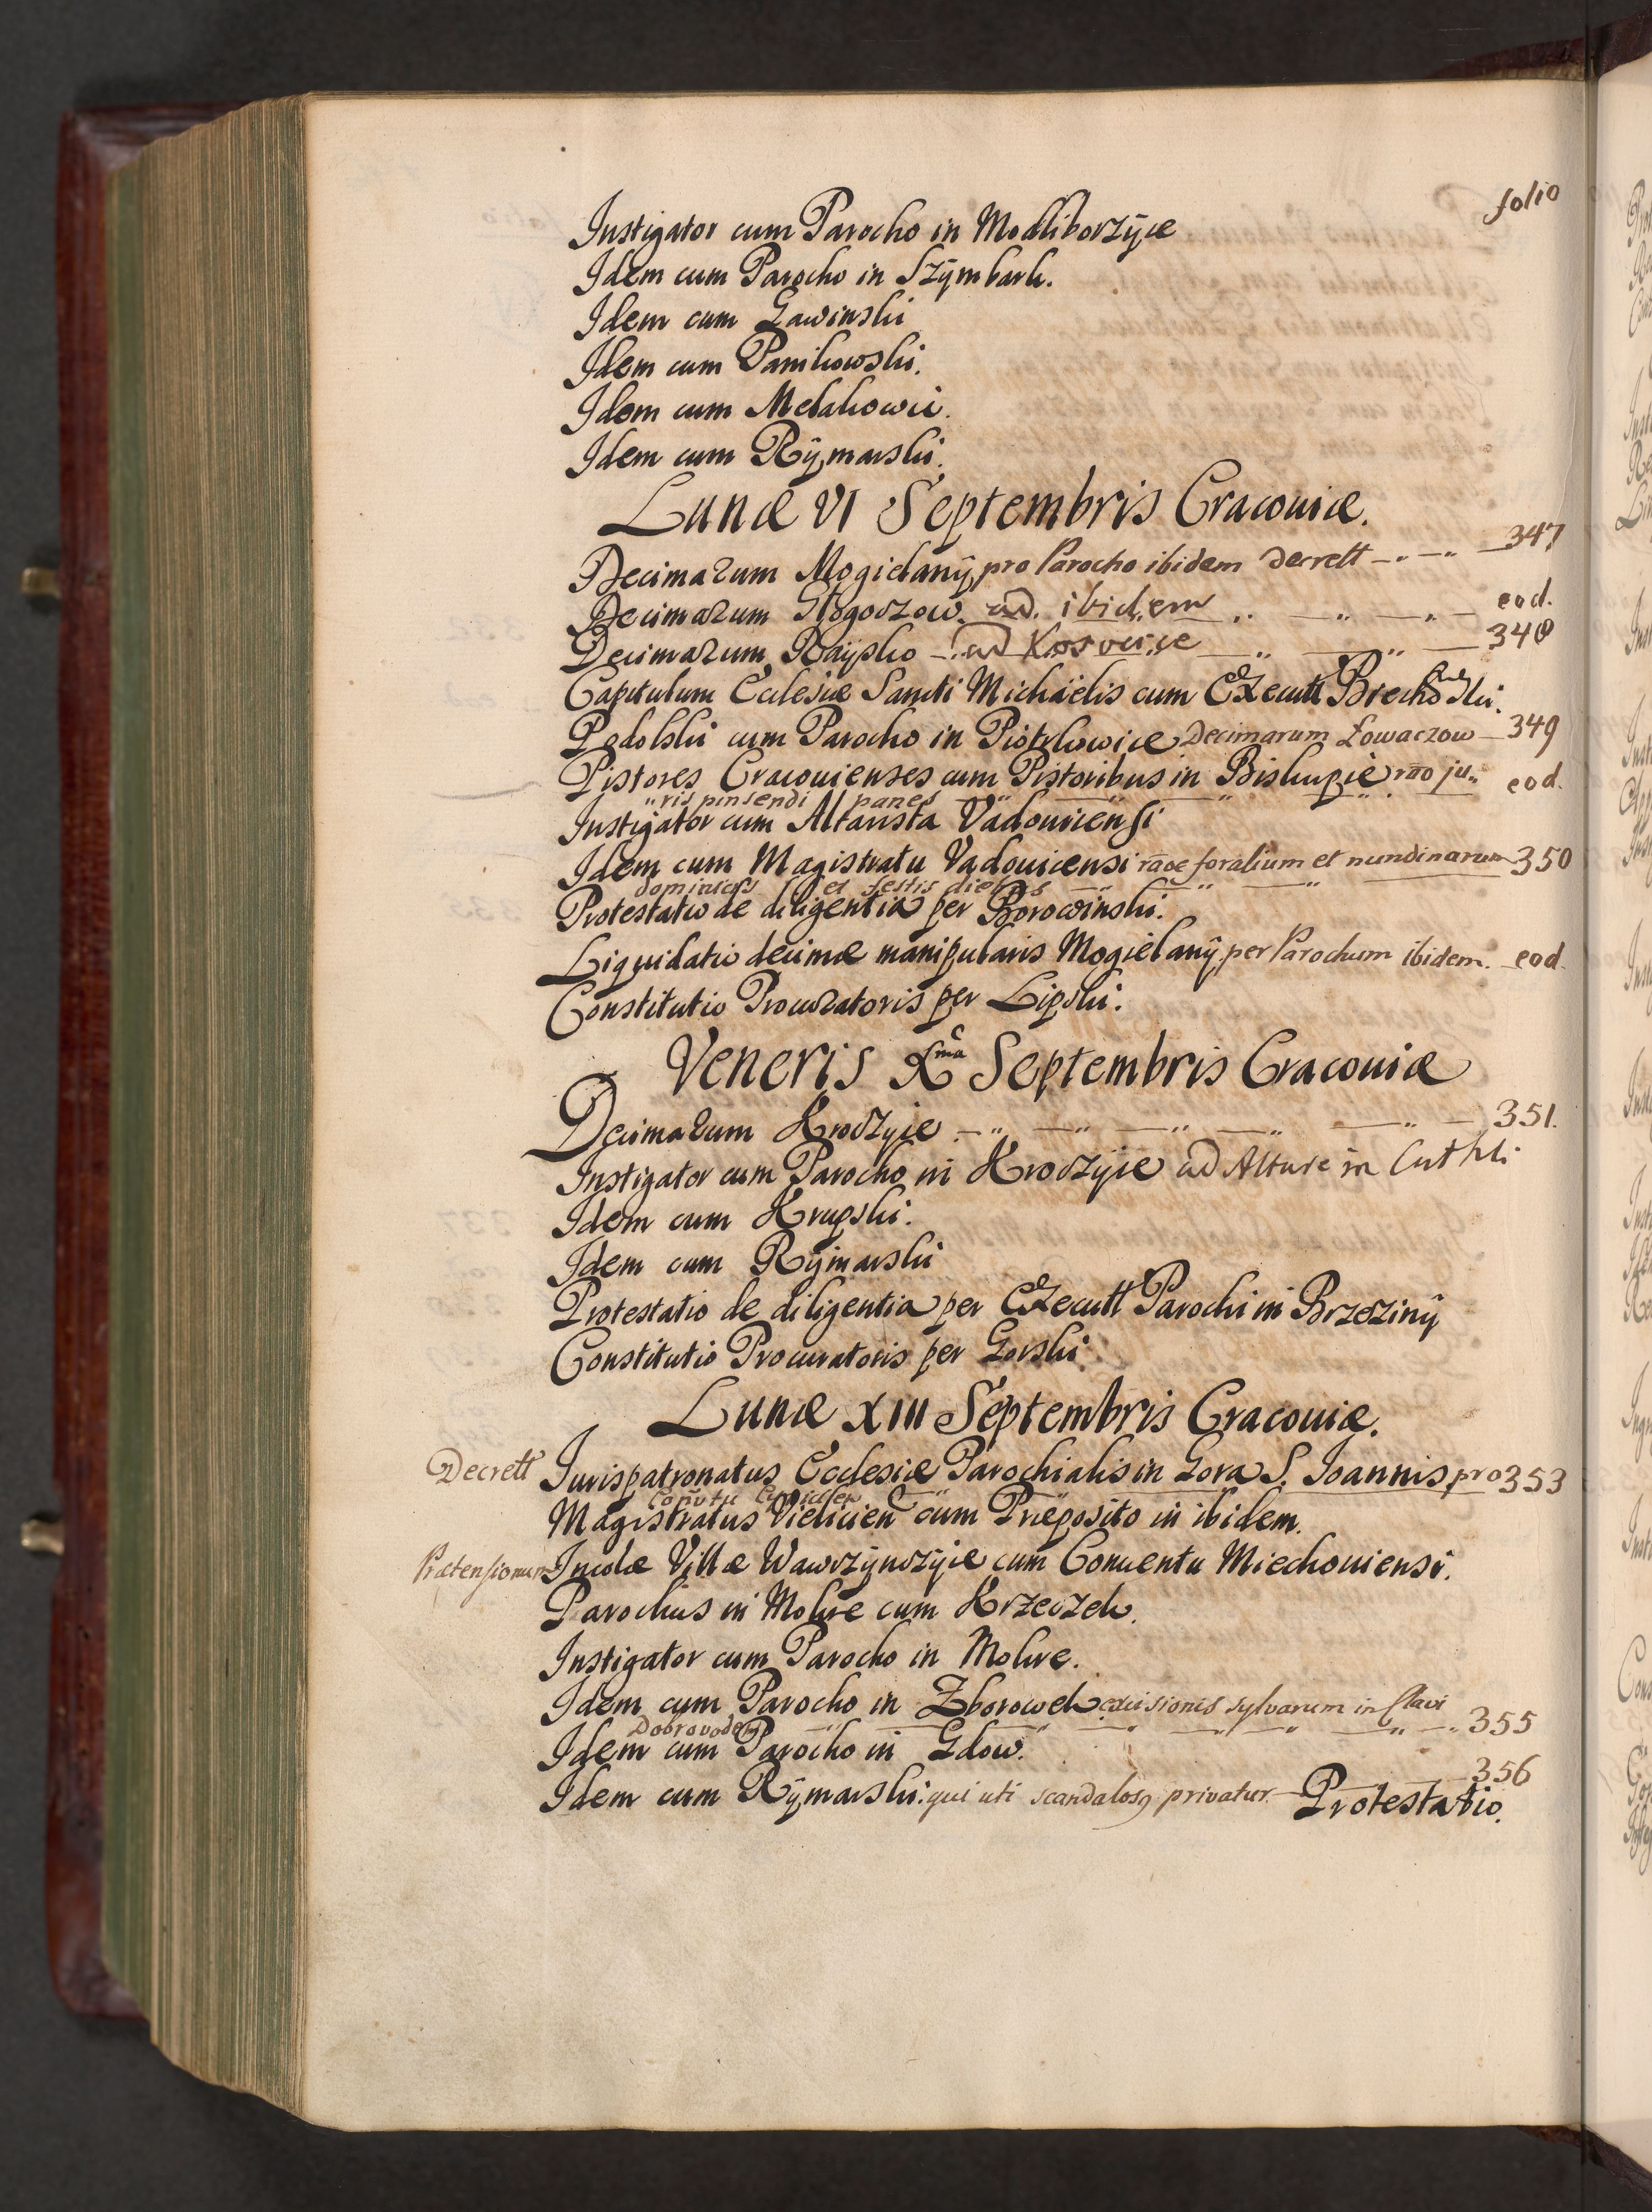 folio
Instigator cum Parocho in Modliborzÿce
Idem cum Parocho in Szÿmbark.
Idem cum Gawinski
Idem cum Panikowski.
Idem cum Metakowic.
Idem cum Rÿmarski.
Lunæ VI Septembris Cracouiæ.
Decimarum Mogielanÿ, pro Parocho ibidem Decrett 347
Decimarum Głogoczow. ad ibidem eod.
Decimarum Raÿsko ad Kosocice 348
Capitulum Ecclesiæ Sancti Michaëlis cum Executt
Podolski cum Parocho in Piotrkowice Decimarum Łowaczow 349
Pistores Cracouienses cum Pistoribus in Biskupie rāo ju„ eod.
„ris pinsendi panes
Instigator cum Altarista Vadouicensi
Idem cum Magistratu Vadouicensi rāoe foralium et nundinarum 350
dominicis et festis diebus
Protestatio de diligentia per Borowinski.
Liquidatio decimæ manipularis Mogielanÿ. per Parochum ibidem. eod.
Constitutio Procuratoris per Lipski.
Veneris Xma Septembris Cracouiæ
Decimarum Kroczÿce 351.
Instigator cum Parocho in Kroczÿce ad Altare in
Idem cum Krupski.
Idem cum Rÿmarski
Protestatio de diligentia per Executt Parochi in Brzezinÿ
Constitutio Procuratoris per Gorski.
Lunæ XIII Septembris Cracouiæ.
Decrett Jurispatronatus Ecclesiæ Parochialis in Gora S. Joannis, pro 353
Magistratus Vielicien cum Præposito in ibidem.
Prætensionum Incolæ Villæ Wawrzÿnczÿce cum Conuentu Miechouiensi.
Parochus in Mokre cum Krzeczek.
Instigator cum Parocho in Mokre.
Idem cum Parocho in Zborowek excisionis sylvarum in Clavi
Dobrovoden 355
Idem cum Parocho in Gdow.
Idem cum Rÿmarski. qui uti scandalosg privatur. 356
Protestatio.